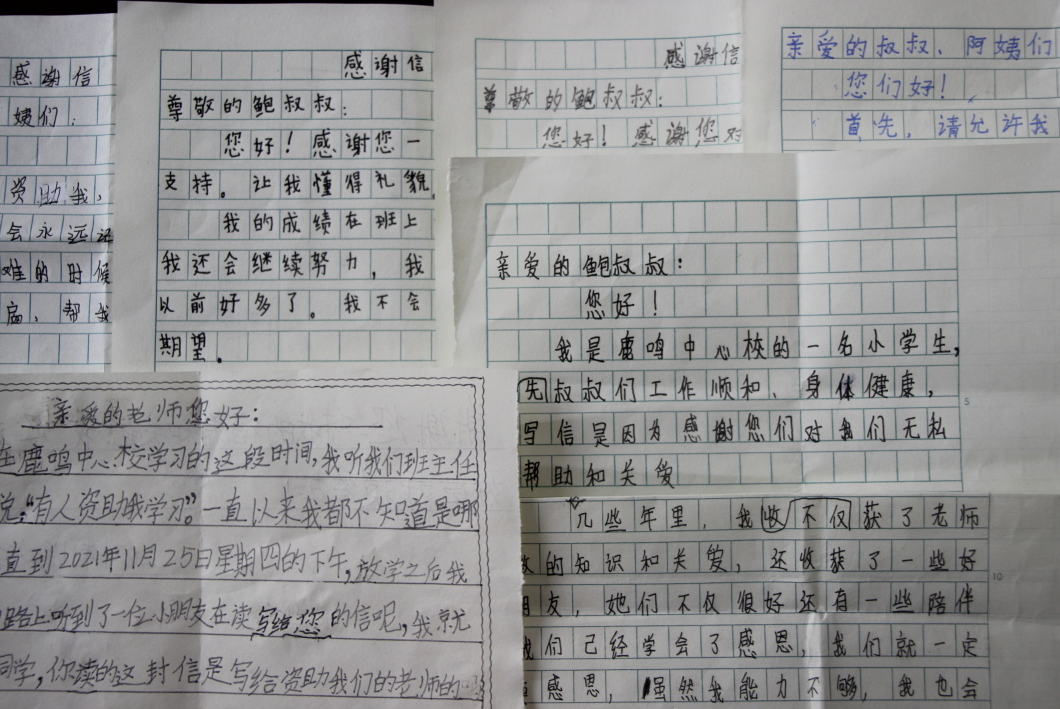 感谢信
姨们：
资助我，
会永远记
难的时候
帮我
感谢信
尊敬的鲍叔叔：
您好！感谢您一
支持。让我懂得礼貌
我的成绩在班上
我还会继续努力，我
以前好多了。我不会
期望。
感谢信
尊敬的鲍叔叔：
您好！感谢您对
亲爱的叔叔、阿姨们
您们好！
首先，请允许我
亲爱的鲍叔叔：
您好！
我是鹿鸣中心校的一名小学生，
先叔叔们工作顺和、身体健康，
写信是因为感谢您们对我们无私
帮助和关爱
亲爱的老师您好：
在鹿鸣中心校学习的这段时间，我听我们班主任
说：“有人资助我学习”。一直以来我都不知道是哪
直到2021年11月25日星期四的下午，放学之后我
路上听到了一位小朋友在读写给您的信呢，我就
同学，你读的这封信是写给资助我们的老师的
几些年里，我收不仅获了老师
的知识和关爱，还收获了一些好
朋友，她们不仅很好还有一些陪伴
我们已经学会了感恩，我们就一定
感恩，虽然我能力不够，我也会
5
10